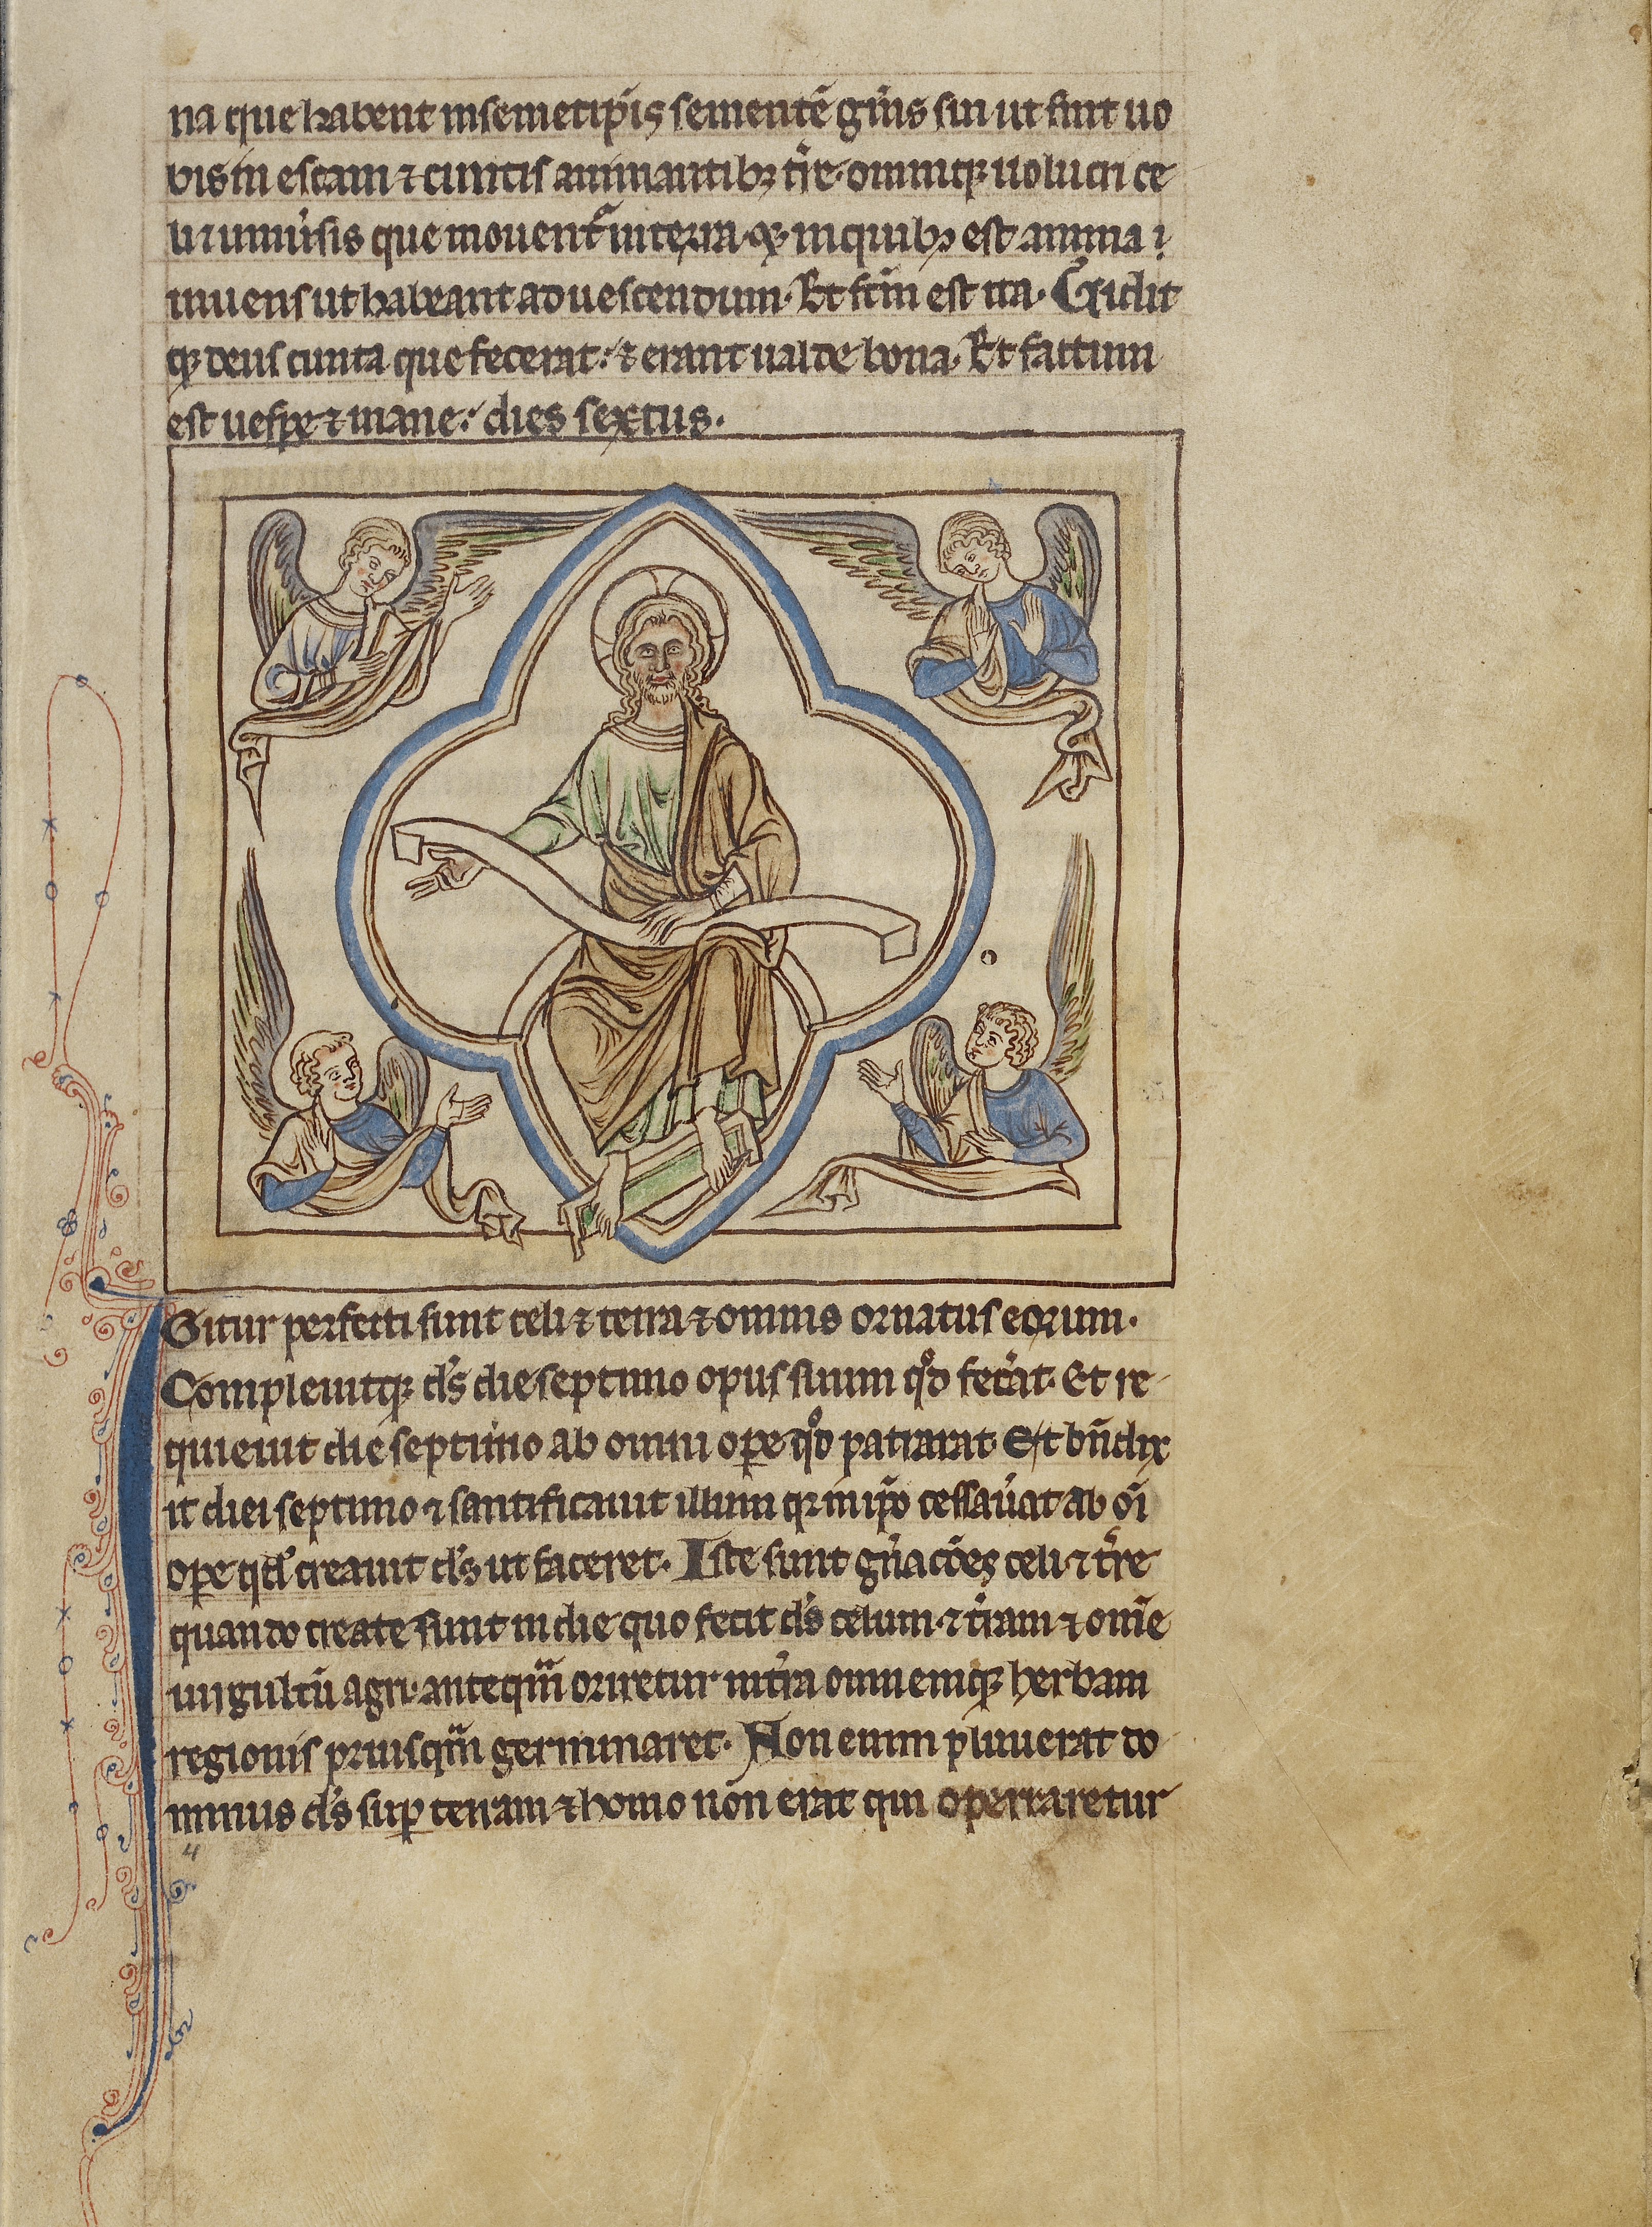 na que habent in semetip̄is sementē gn̄is sui ut sint uo
bis in escam ⁊ cunctis animantibꝫ tr̄e· omniqꝫ uolucri ce
li ⁊ uniu̾sis que mouent᷑ in terra· ⁊ in quibꝫ est anima i
uiuens ut habeant ad uescendum· Et fc̄m est ita· Uidit
qꝫ deus cunta que fecerat: ⁊ erant ualde bona· Et factum
est uesꝑe ⁊ mane: dies sextus·
Igitur perfecti sunt celi ⁊ terra ⁊ omnis ornatus eorum·
Compleuitqꝫ ds̄ die septimo opus suum qd̄ fec̾at· Et re
quieuit die septimo ab omni oꝑe qd̄ patrarat Et bn̄dix
it diei septimo ⁊ santificauit illum qꝛ in ip̄o cessau̾at ab om̄i
oꝑe qd̄ creauit ds̄ ut faceret· Iste sunt gn̄acōes celi ⁊ tr̄e
quando create sunt in die quo fecit ds̄ celum· ⁊ tr̄am ⁊ om̄e
uirgultū agri· antequā oriretur in tr̄a omnemqꝫ herbam
regionis priusquā germinaret· Non enim pluuerat do
minus ds̄ suꝑ terram ⁊ homo non erat qui operraretur
4